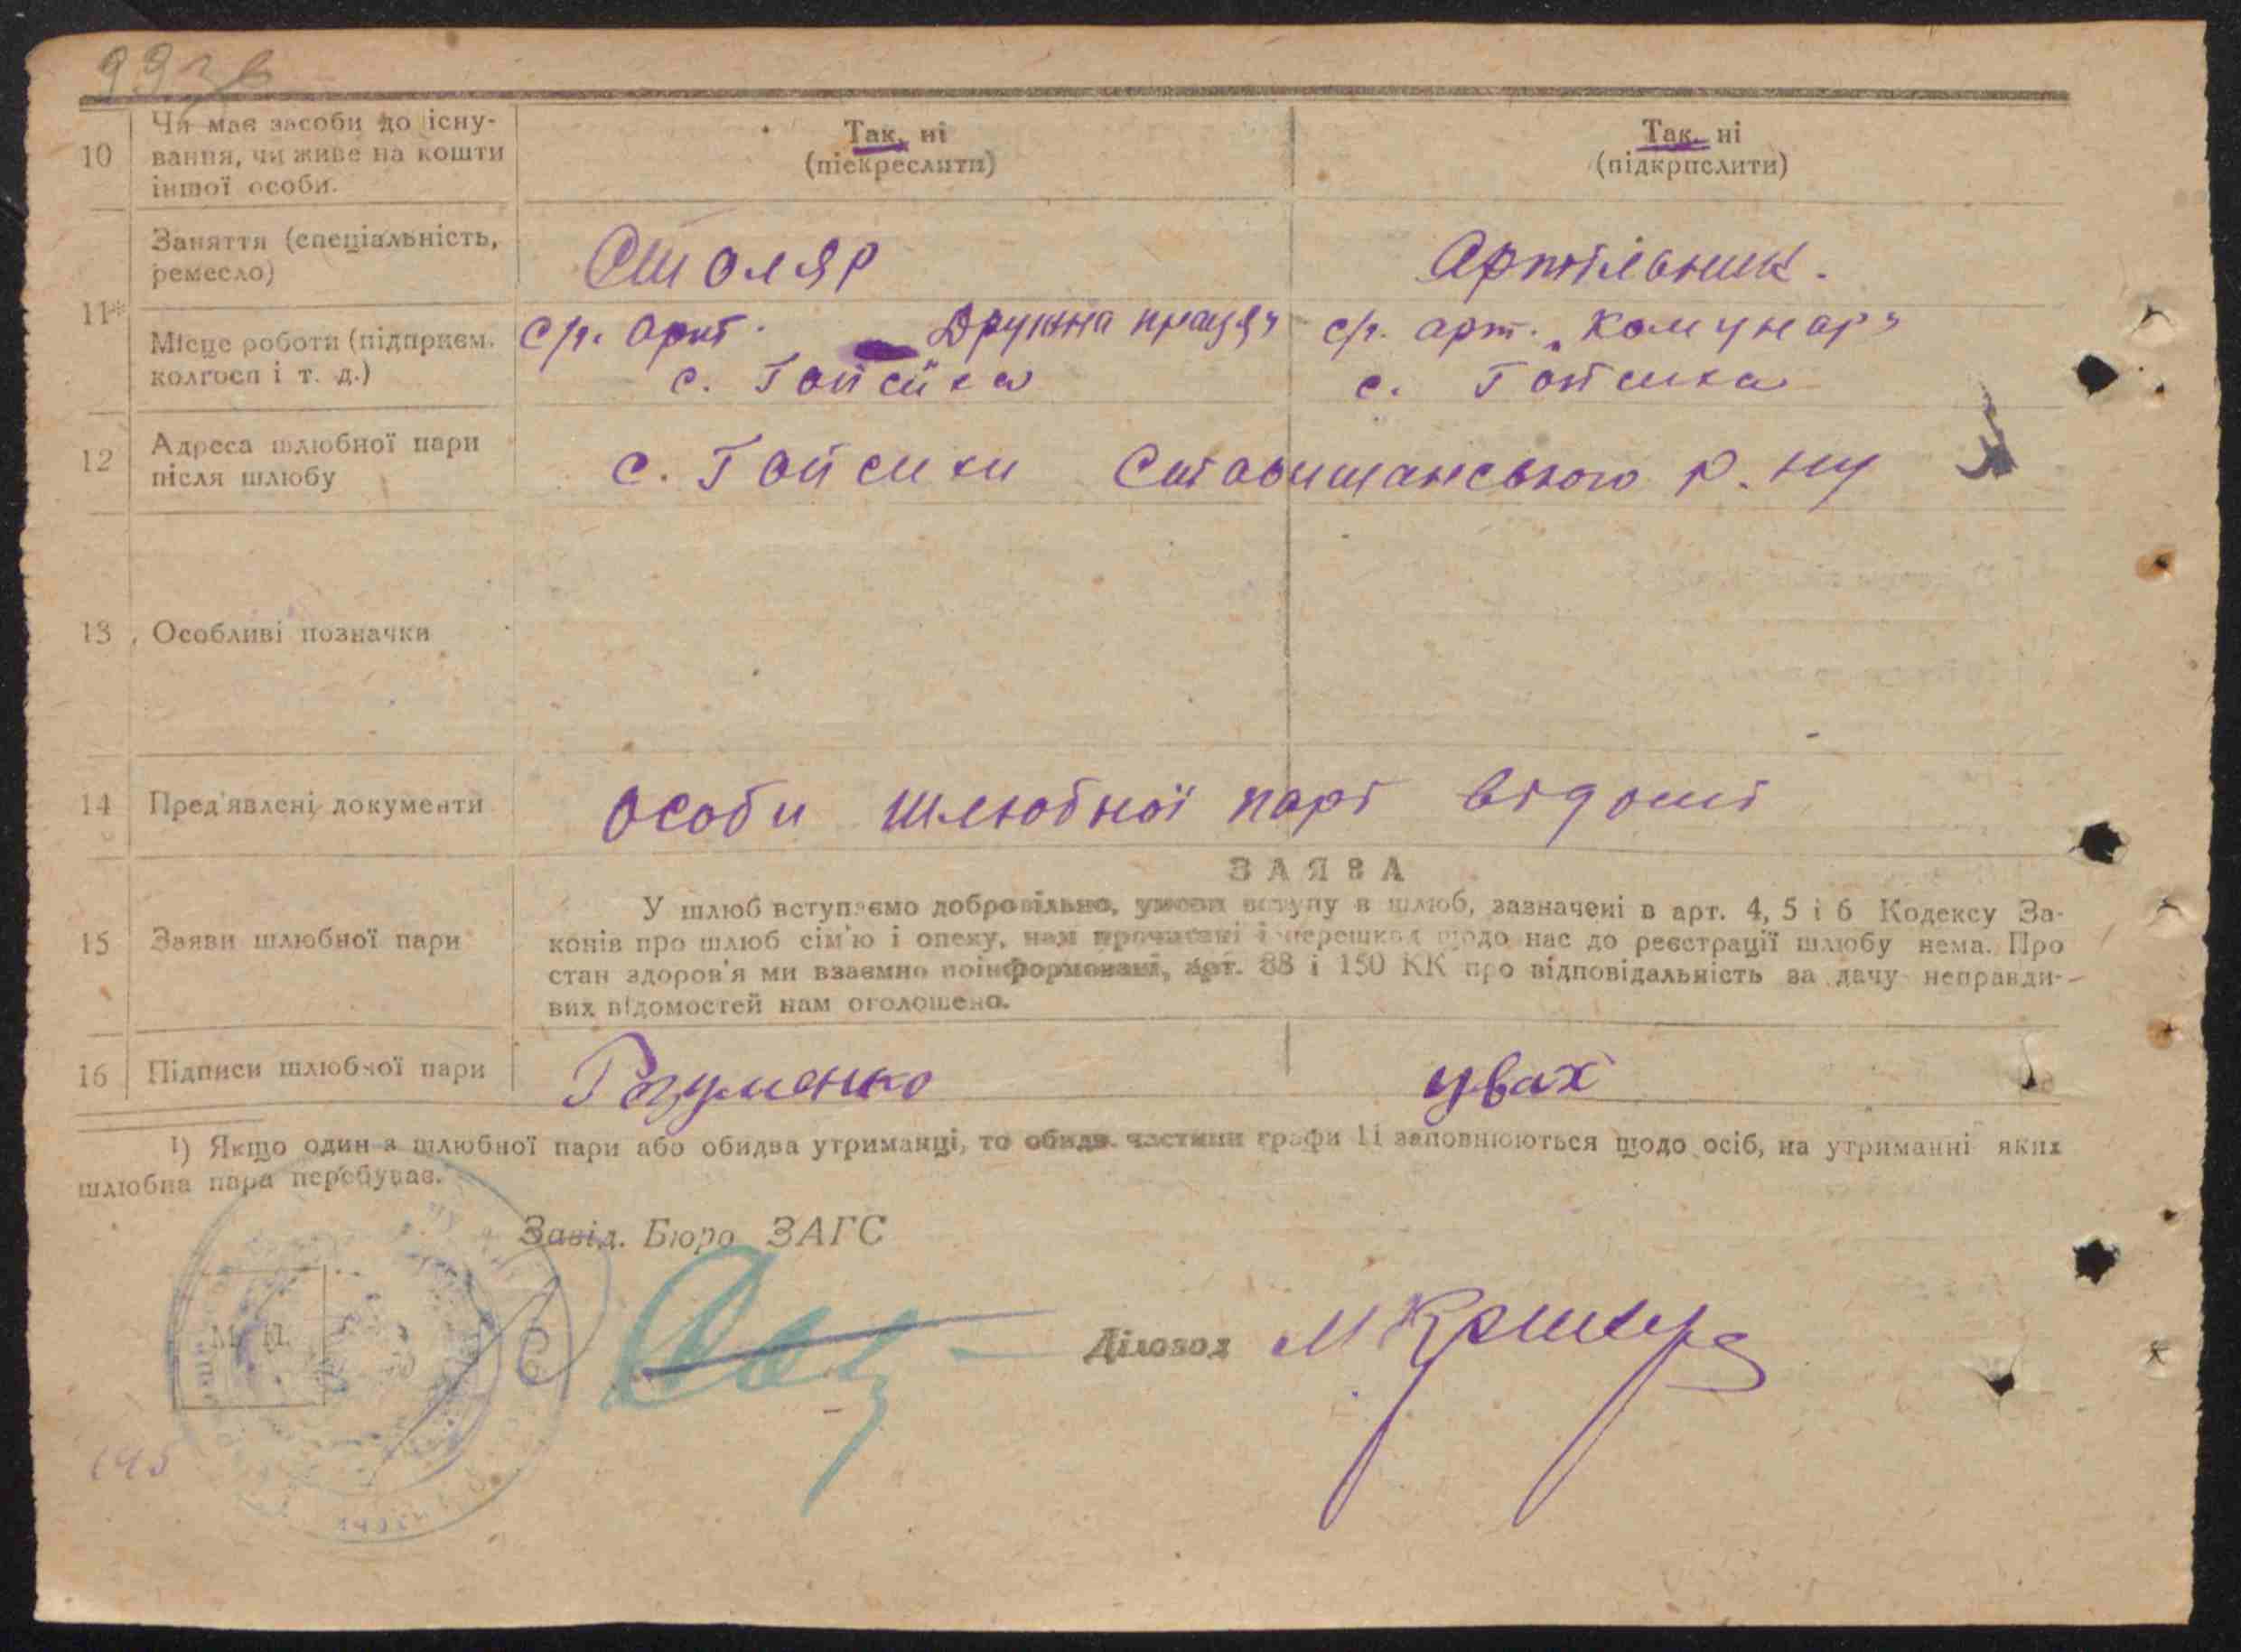 99зв
10 Чи має засоби до існу-
вання, чи живе на кошти
іншої особи.
Так, ні
(піекреслити)
Так, ні
(підкрпслити)
11*
Заняття (спеціальність,
ремесло)
Столяр
Артільник.
Місце роботи (підприєм.
колгосп і т. д.)
с/г. арт. Дружна праця"
с. Гайсиха
с/г. арт. „Комунар"
с. Гайсиха
12 Адреса шлюбної пари
після шлюбу
с. Гайсихи Ставищанського р. ну
13 Особливі позначки
14 Пред'явлені документи
особи шлюбної парі відомі
ЗАЯВА
15 Заяви шлюбної пари
У шлюб вступаємо добровільно, умови вступу в шлюб, зазначені в арт. 4, 5 і 6 Кодексу За-
конів про шлюб сім'ю і опеку, нам прочитані і перешкод щодо нас до реєстрації шлюбу нема. Про
стан здоров'я ми взаємно поінформовані, арт. 88 і 150 КК про відповідальність за дачу неправди-
вих відомостей нам оголошено.
16 Підписи шлюбної пари
Розуменко
увах
1) Якщо один з шлюбної пари або обидва утриманці, то обидв. частини графи 11 заповнюються щодо осіб, на утриманні яких
шлюбна пара перебуває.
Завід. Бюро ЗАГС
М. П.
Діловод
145